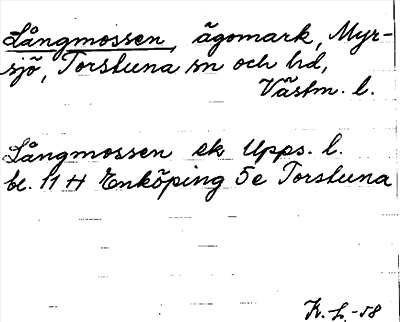 Långmossen, ägomark, Myr-
sjö, Torstuna sn och hd,
Västm. l.
Långmossen ek Upps. l.
bl. 11 H Enköping 5e Torstuna
K. L. -58